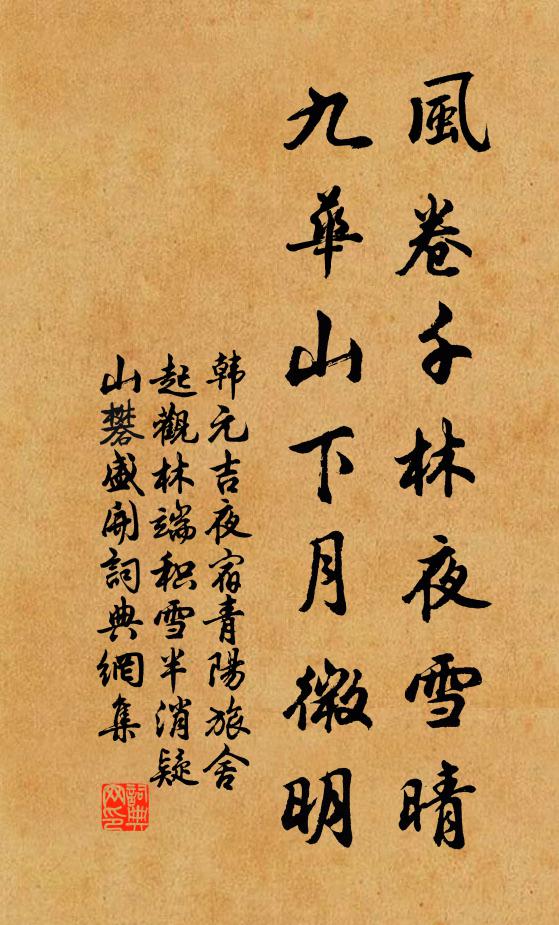 風卷千林夜雪晴
九華山下月微明
韩元吉夜宿青陽旅舍
起觀林端积雪半消疑
山礬盛開詞典網集
詞典网印